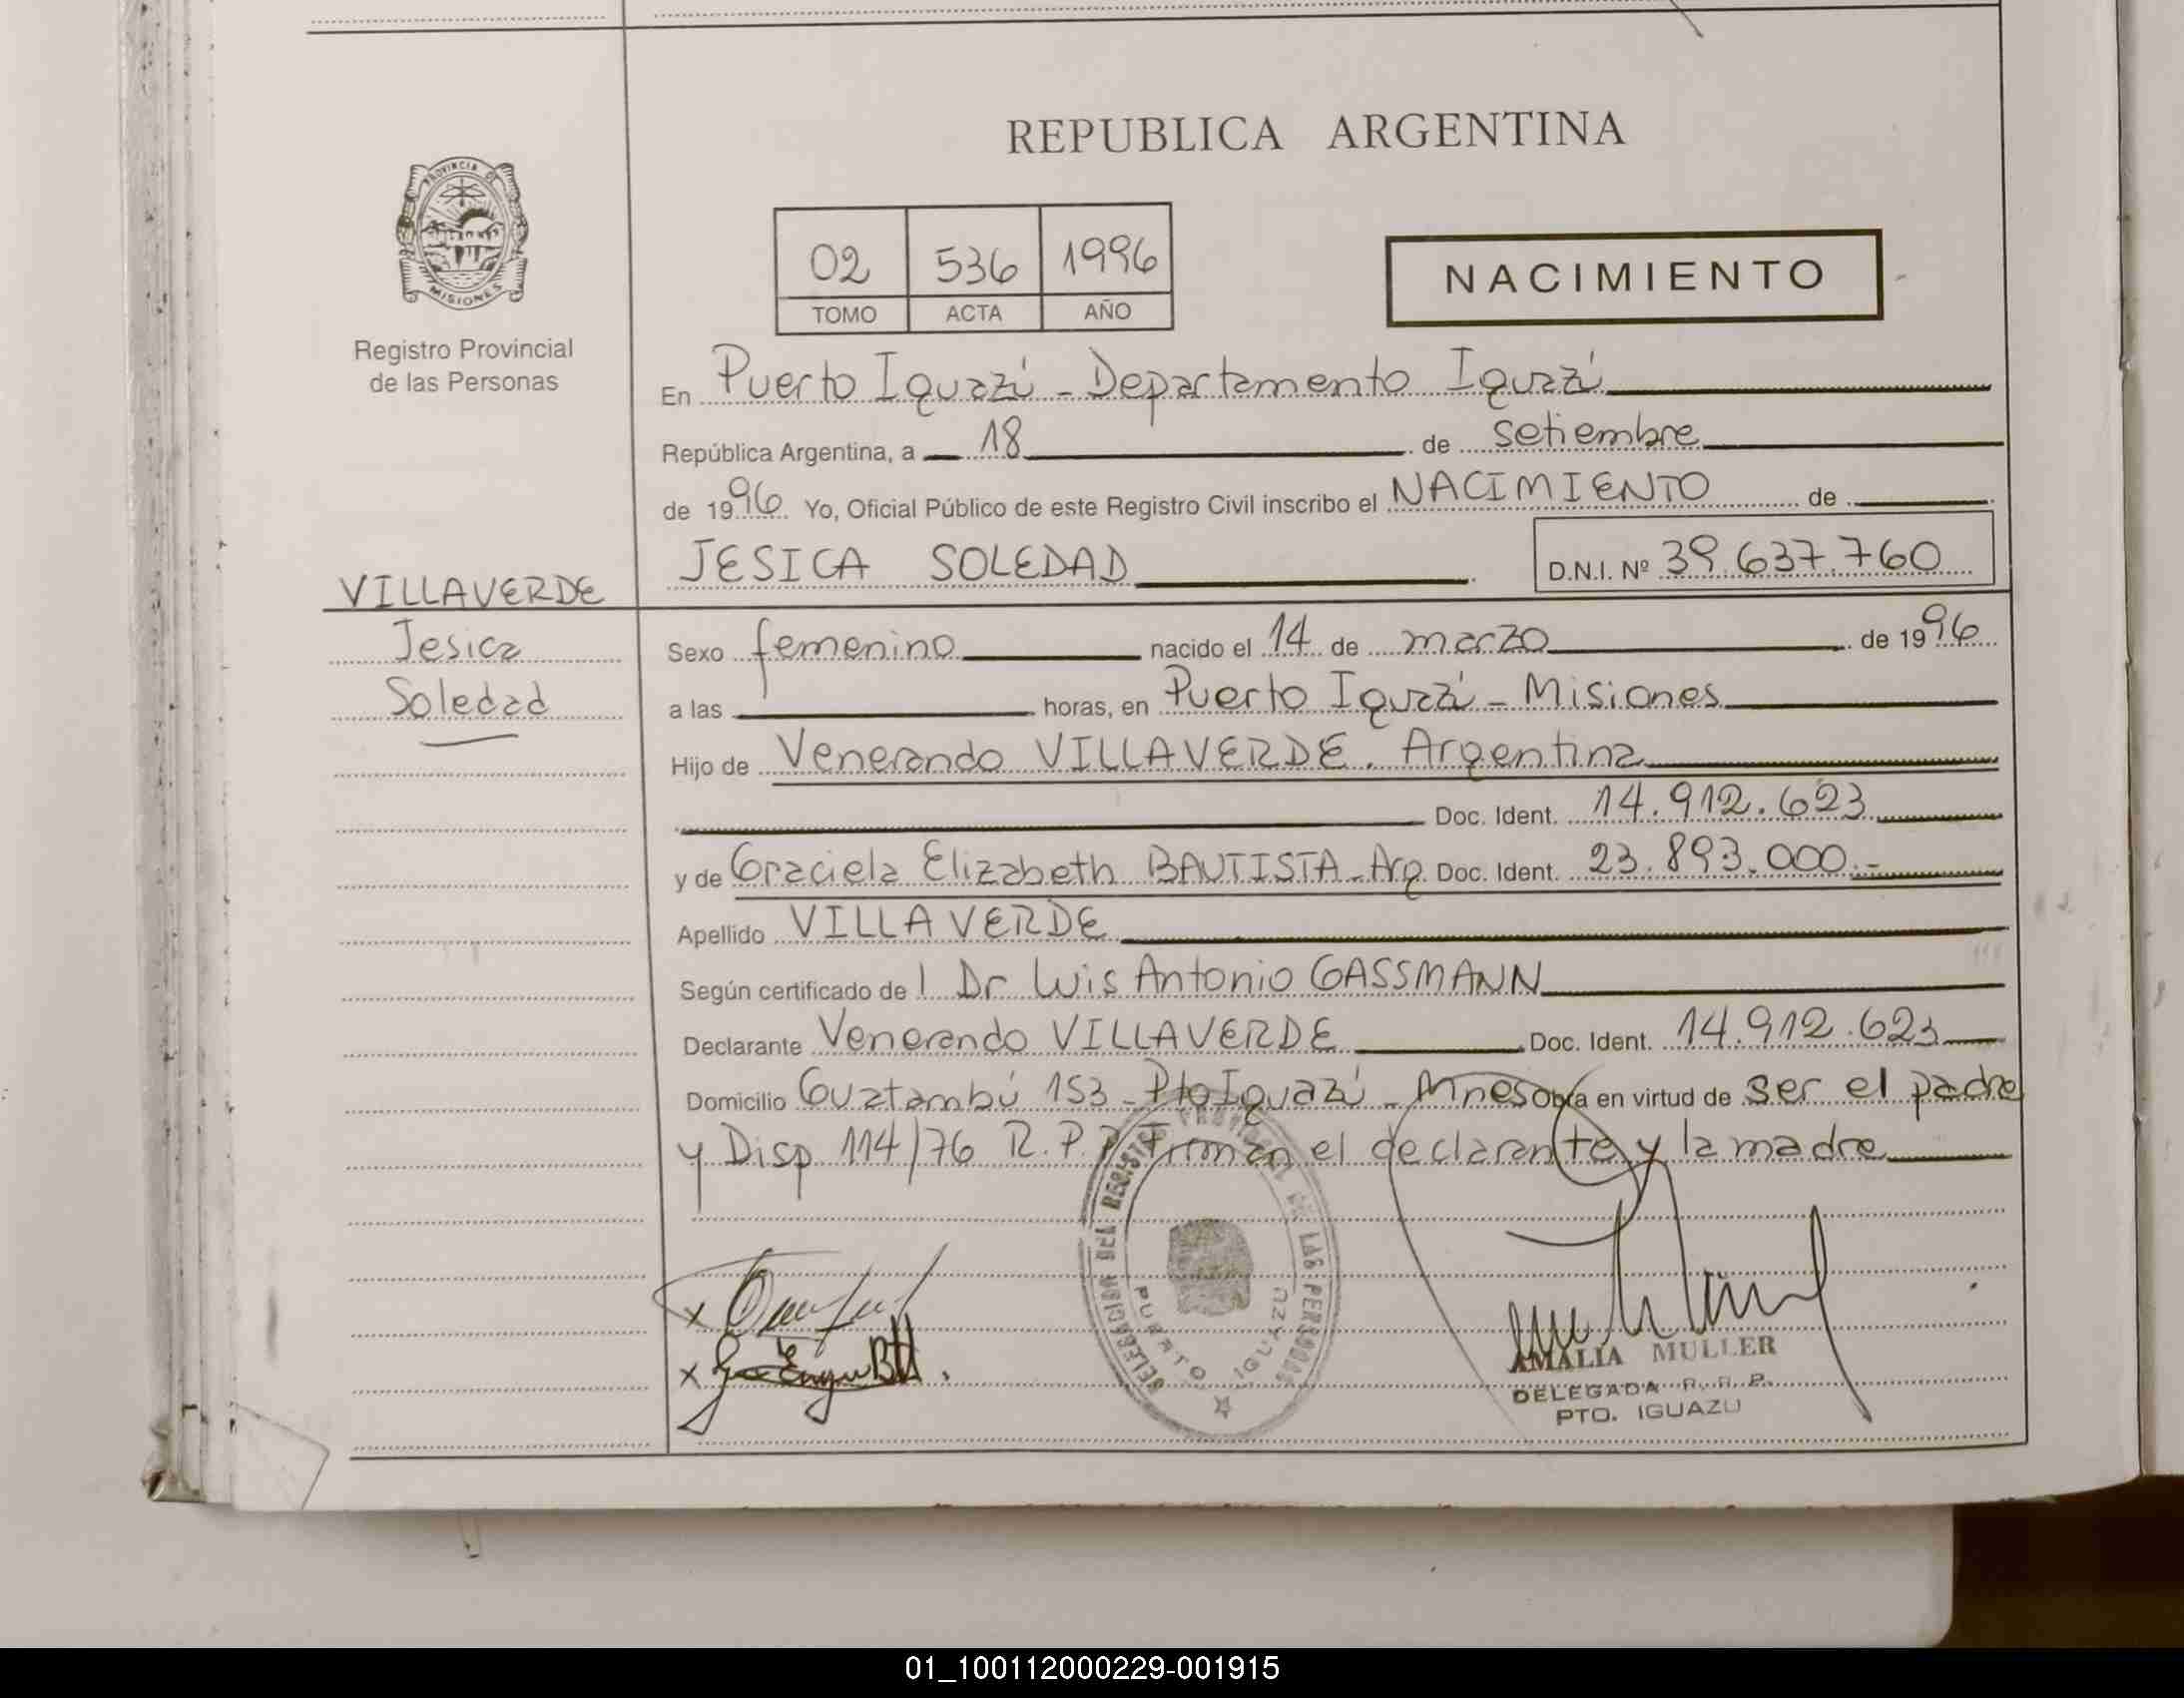 REPUBLICA ARGENTINA
PROVINCIA DE
MISIONES
Registro Provincial
de las Personas
02 536 1996
TOMO ACTA AÑO
NACIMIENTO
En Puerto Iguazú - Departamento Iguazú
República Argentina, a 18 de setiembre
de 1996 Yo, Oficial Público de este Registro Civil inscribo el NACIMIENTO de
JESICA SOLEDAD D.N.I. Nº 39.637.760
VILLAVERDE
Jesica
Soledad
Sexo femenino nacido el 14 de marzo de 1996
a las horas, en Puerto Iguazú - Misiones
Hijo de Venerando VILLAVERDE. Argentina
Doc. Ident. 14.912.623
y de Graciela Elizabeth BAUTISTA - Arg. Doc. Ident. 23.893.000.-
Apellido VILLAVERDE
Según certificado de l Dr Luis Antonio GASSMANN
Declarante Venerando VILLAVERDE Doc. Ident. 14.912.623
Domicilio Guatambú 153 - Pto Iguazú - Mnes Obra en virtud de ser el padre
y Disp 114/76 R.P.P. Firman el declarante y la madre
DELEGACION DEL REGISTRO PROVINCIAL DE LAS PERSONAS
PUERTO IGUAZU
AMALIA MULLER
DELEGADA R. R. P.
PTO. IGUAZU
01_100112000229-001915